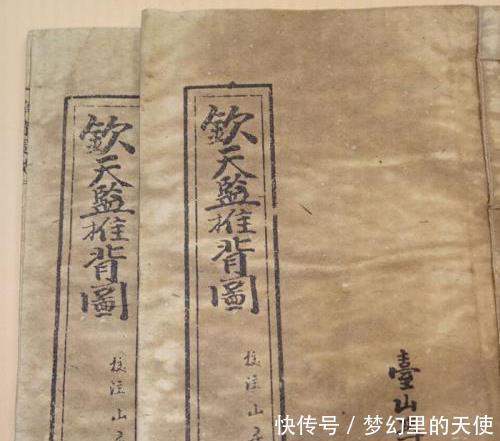 欽天監推背圖
校注山
欽天監推背圖
校注山
臺山
快传号/梦幻里的天使